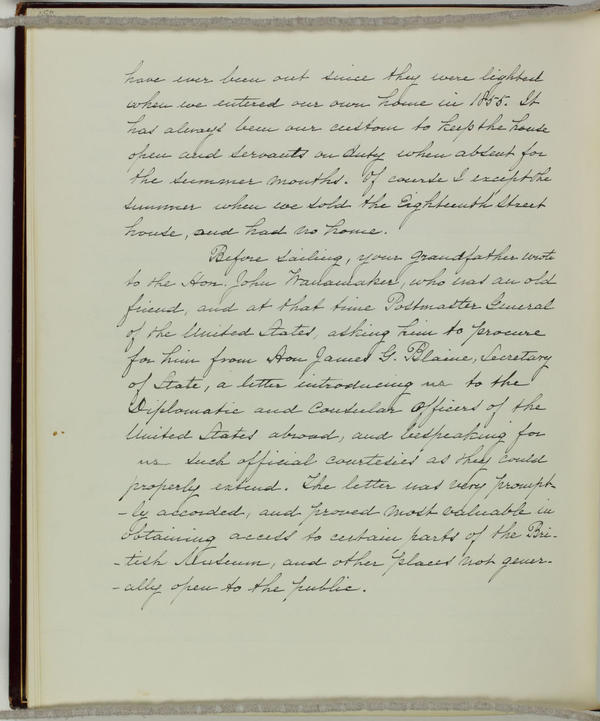 have ever been out since they were lighted
when we entered our own home in 1855. It
has always been our custom to keep the house
open and servants on duty when absent for
the summer months. Of course I except the
summer when we sold the Eighteenth Street
house, and had no home.
Before sailing, your Grandfather wrote
to the Hon. John Wanamaker, who was an old
friend, and at that time Postmaster General
of the United States, asking him to procure
for him from Hon James G. Blaine, Secretary
of State, a letter introducing us to the
Diplomatic and Consular Officers of the
United States abroad, and bespeaking for
us such official courtesies as they could
properly extend. The letter was very prompt-
-ly accorded, and proved most valuable in
obtaining access to certain parts of the Bri-
-tish Museum, and other places not gener-
-ally open to the public.